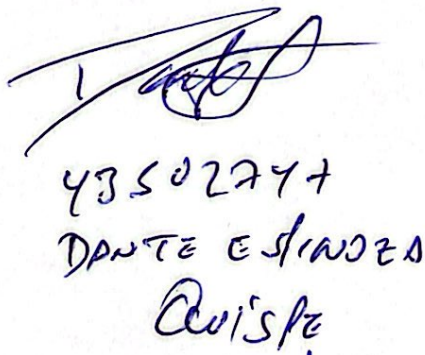 43502747
DANTE ESPINOZA
Quispe